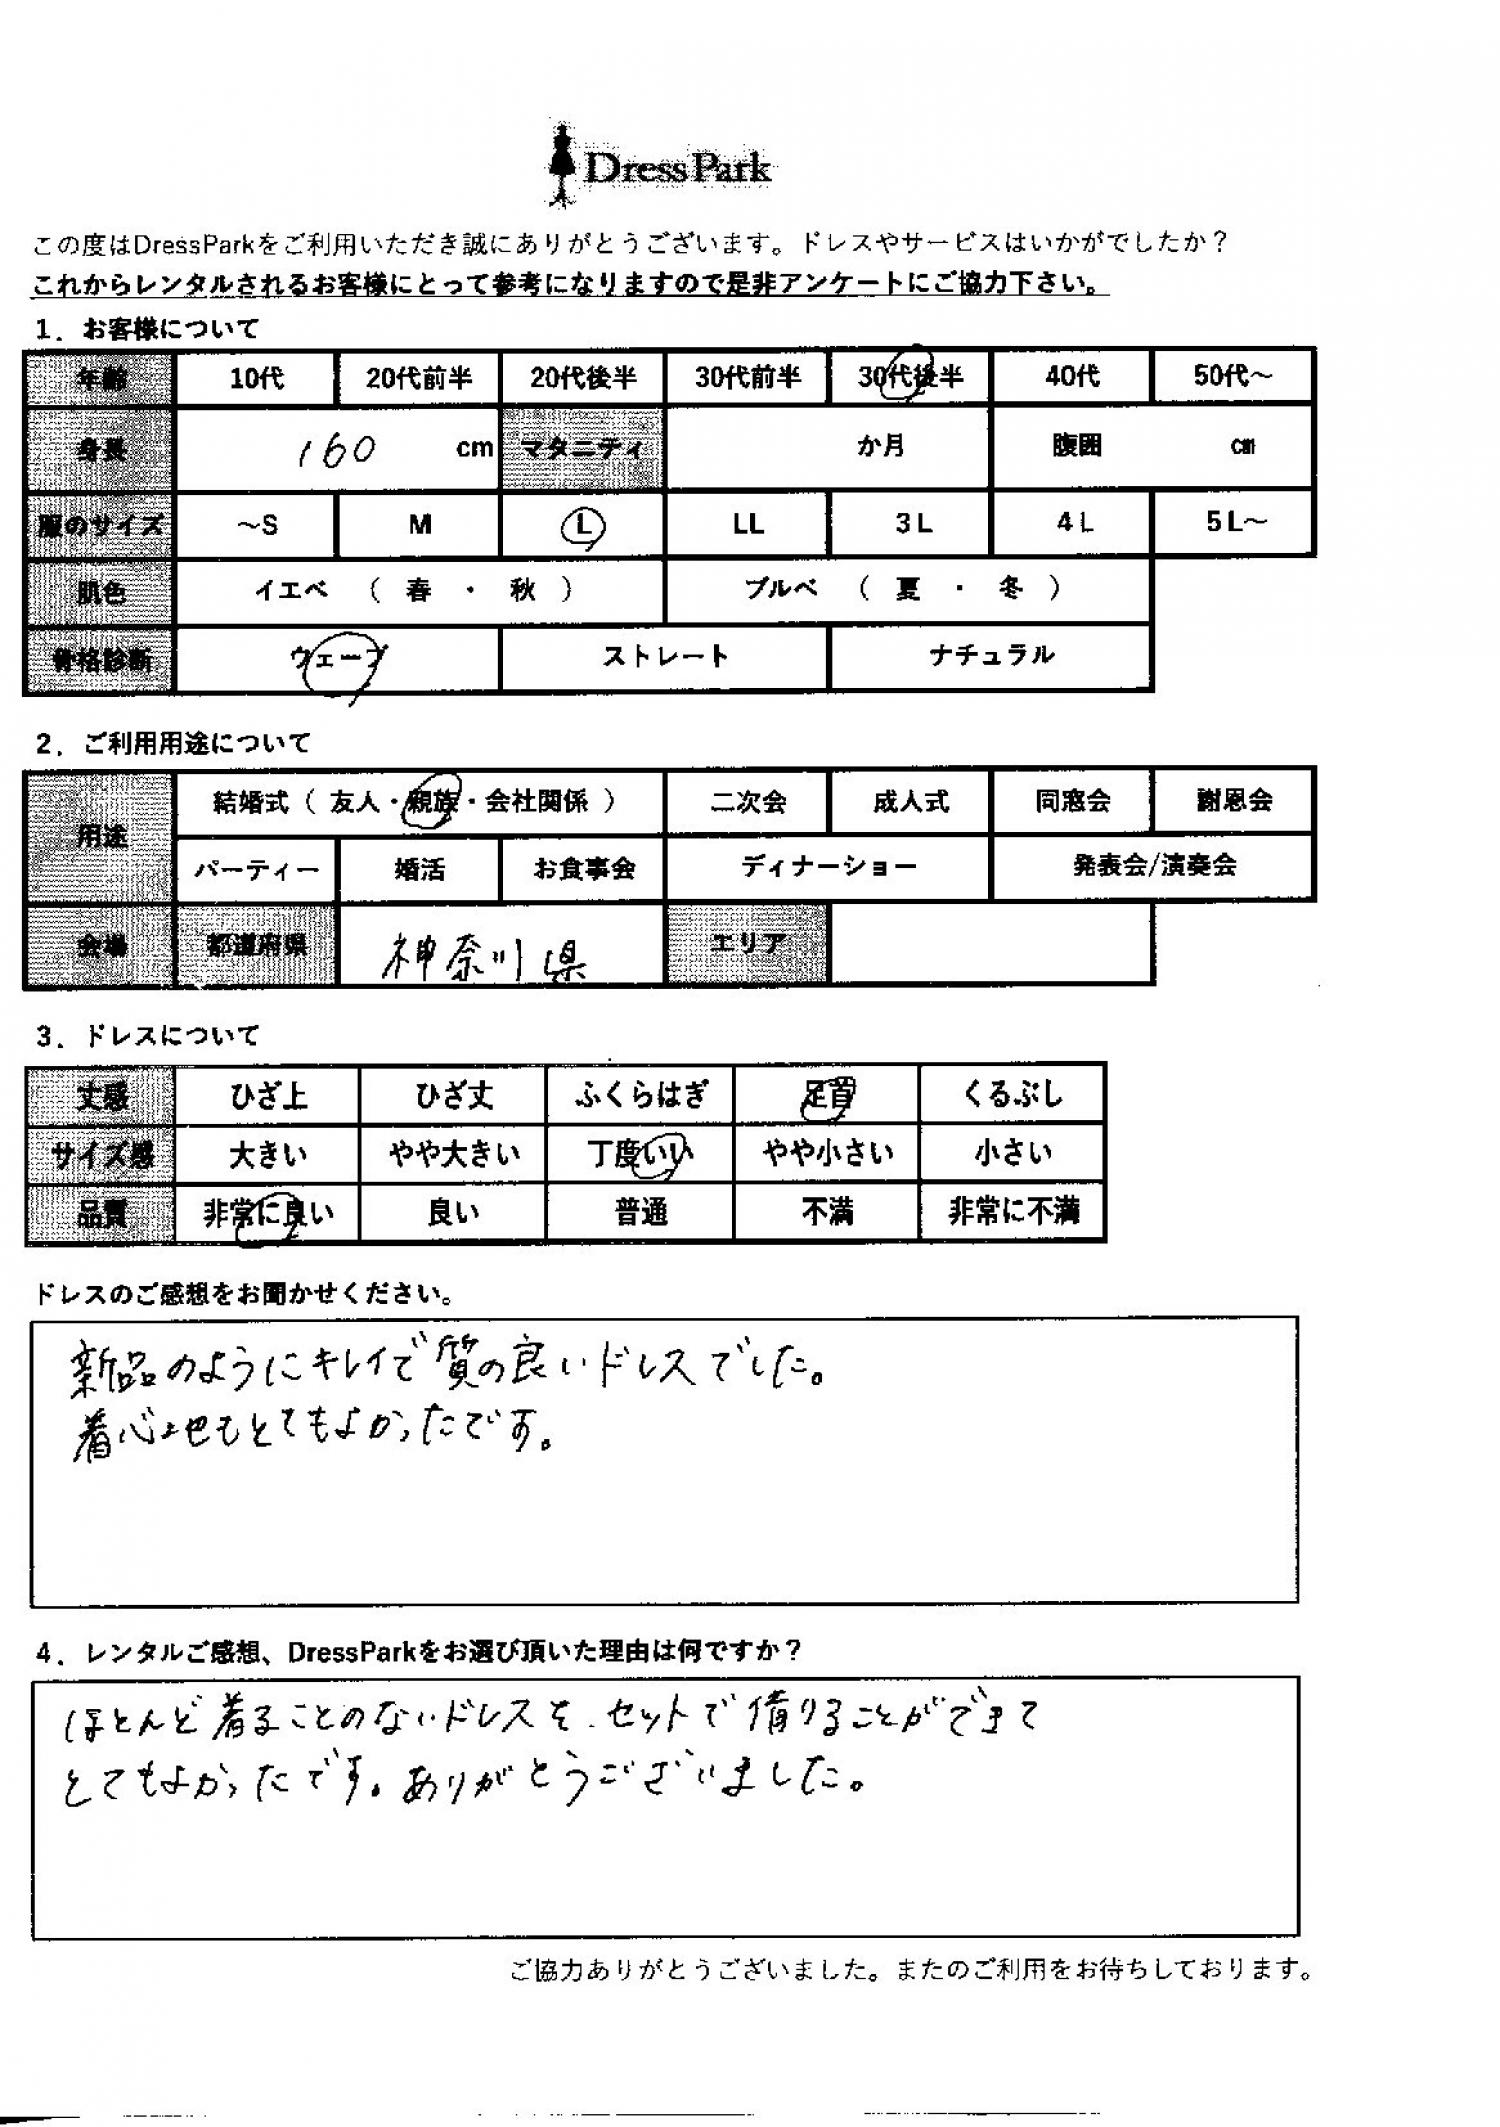 DressPark
この度はDressParkをご利用いただき誠にありがとうございます。ドレスやサービスはいかがでしたか？
これからレンタルされるお客様にとって参考になりますので是非アンケートにご協力下さい。
1．お客様について
年齢 10代 20代前半 20代後半 30代前半 30代後半 40代 50代～
身長 160 cm マタニティ か月 腹囲 cm
服のサイズ ～S M L LL 3L 4L 5L～
肌色 イエベ （ 春 ・ 秋 ） ブルベ （ 夏 ・ 冬 ）
骨格診断 ウェーブ ストレート ナチュラル
2．ご利用用途について
用途 結婚式（ 友人・親族・会社関係 ） 二次会 成人式 同窓会 謝恩会
パーティー 婚活 お食事会 ディナーショー 発表会/演奏会
会場 都道府県 神奈川県 エリア
3．ドレスについて
丈感 ひざ上 ひざ丈 ふくらはぎ 足首 くるぶし
サイズ感 大きい やや大きい 丁度いい やや小さい 小さい
品質 非常に良い 良い 普通 不満 非常に不満
ドレスのご感想をお聞かせください。
新品のようにキレイで質の良いドレスでした。
着心地もとてもよかったです。
4．レンタルご感想、DressParkをお選び頂いた理由は何ですか？
ほとんど着ることのないドレスを、セットで借りることができて
とてもよかったです。ありがとうございました。
ご協力ありがとうございました。またのご利用をお待ちしております。